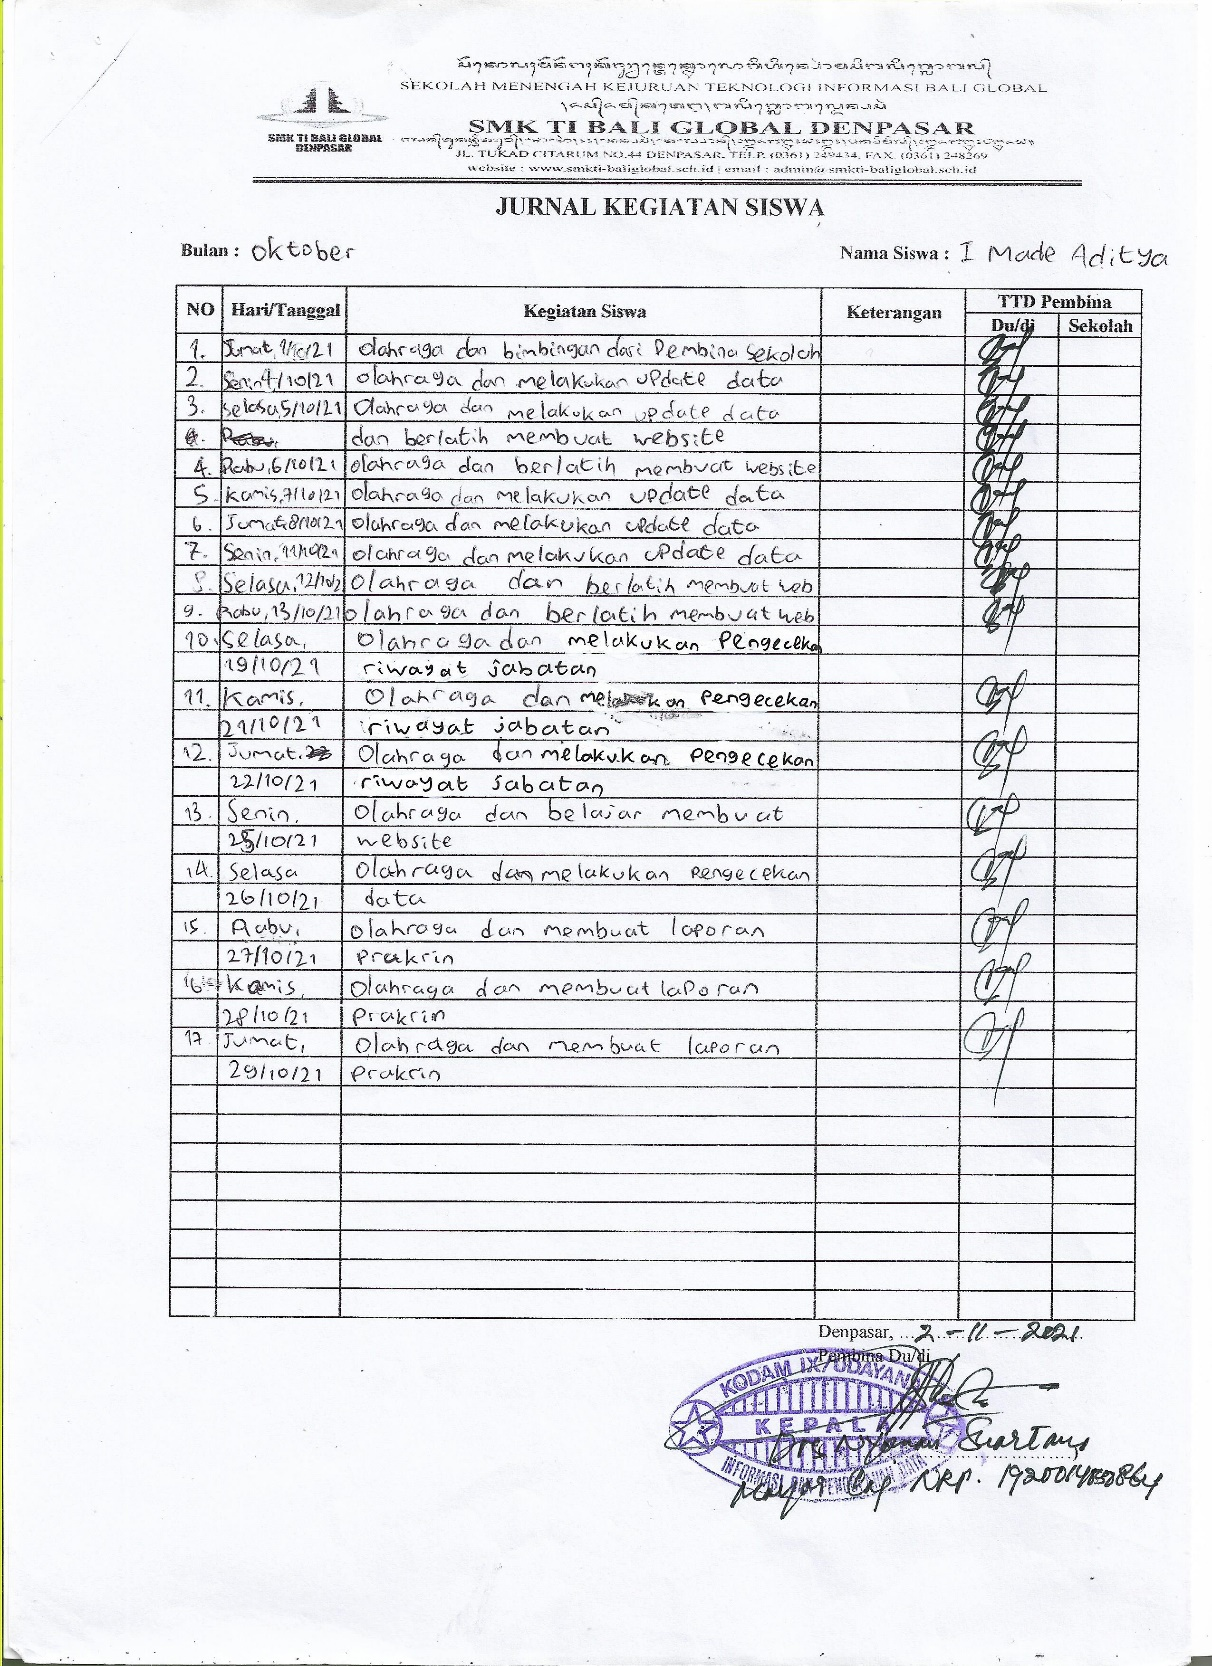 SEKOLAH MENENGAH KEJURUAN TEKNOLOGI INFORMASI BALI GLOBAL
SMK TI BALI GLOBAL DENPASAR
SMK TI BALI GLOBAL
DENPASAR
JL. TUKAD CITARUM NO.44 DENPASAR. TELP. (0361) 249434, FAX. (0361) 248269
website : www.smkti-baliglobal.sch.id | email : admin@ smkti-baliglobal.sch.id
JURNAL KEGIATAN SISWA
Bulan : Oktober Nama Siswa : I Made Aditya
NO Hari/Tanggal Kegiatan Siswa Keterangan TTD Pembina
Du/di Sekolah
1. Jumat, 1/10/21 olahraga dan bimbingan dari Pembina Sekolah
2. Senin 4/10/21 olahraga dan melakukan update data
3. Selasa 5/10/21 Olahraga dan melakukan update data
dan berlatih membuat website
4. Rabu, 6/10/21 olahraga dan berlatih membuat website
5. Kamis, 7/10/21 olahraga dan melakukan update data
6. Jumat, 8/10/21 olahraga dan melakukan update data
7. Senin, 11/10/21 olahraga dan melakukan update data
8. Selasa, 12/10/2 Olahraga dan berlatih membuat web
9. Rabu, 13/10/21 olahraga dan berlatih membuat web
10. Selasa, Olahraga dan melakukan Pengecekan
19/10/21 riwayat jabatan
11. Kamis, Olahraga dan melakukan Pengecekan
21/10/21 riwayat jabatan
12. Jumat. Olahraga dan melakukan Pengecekan
22/10/21 riwayat jabatan
13. Senin, Olahraga dan belajar membuat
25/10/21 website
14. Selasa Olahraga dan melakukan Pengecekan
26/10/21 data
15. Rabu, olahraga dan membuat laporan
27/10/21 Prakrin
16. Kamis, Olahraga dan membuat laporan
28/10/21 Prakrin
17. Jumat, Olahraga dan membuat laporan
29/10/21 Prakrin
Denpasar, 2 - 11 - 2021
Pembina Du/di
KODAM IX/UDAYANA
KEPALA
INFORMASI DAN PENGOLAHAN DATA
NRP.